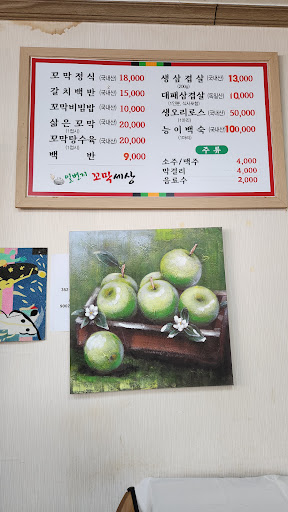 꼬막정식 (국내산) 18,000
갈치백반 (국내산) 15,000
꼬막비빔밥 (국내산) 10,000
삶은꼬막 (국내산) 20,000
(1접시)
꼬막탕수육 (국내산) 20,000
(1접시)
백반 9,000
꼬막세상
생삼겹살 (국내산) 13,000
(200g)
대패삼겹살 (독일산) 10,000
생오리로스 (국내산) 50,000
(1마리)
능이백숙 (국내산) 100,000
(1마리)
주류
소주/맥주 4,000
막걸리 4,000
음료수 2,000